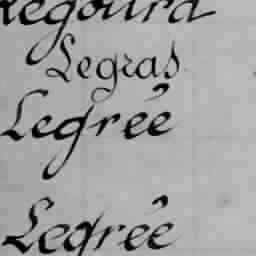 Legourd
Legras
Legrée
Legrée